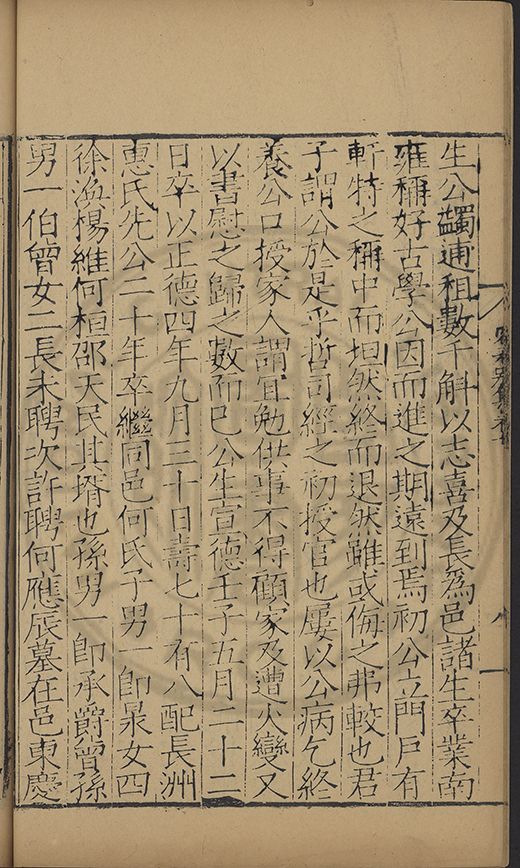 生公蠲逋租數千斛以志喜及長爲邑諸生卒業南
雍稱好古學公因而進之期遠到焉初公立門戶有
軒特之稱中而坦然終而退然雖或侮之弗較也君
子謂公於是乎哲司經之初授官也屢以公病乞終
養公口授家人謂宜勉供事不得顧家及遭火變又
以書慰之歸之數而已公生宣德壬子五月二十二
日卒以正德四年九月三十日壽七十有八配長洲
惠氏先公二十年卒繼同邑何氏子男一即杲女四
徐渙楊維何桓邵天民其壻也孫男一即承爵曾孫
男一伯曾女二長未聘次許聘何應辰墓在邑東慶